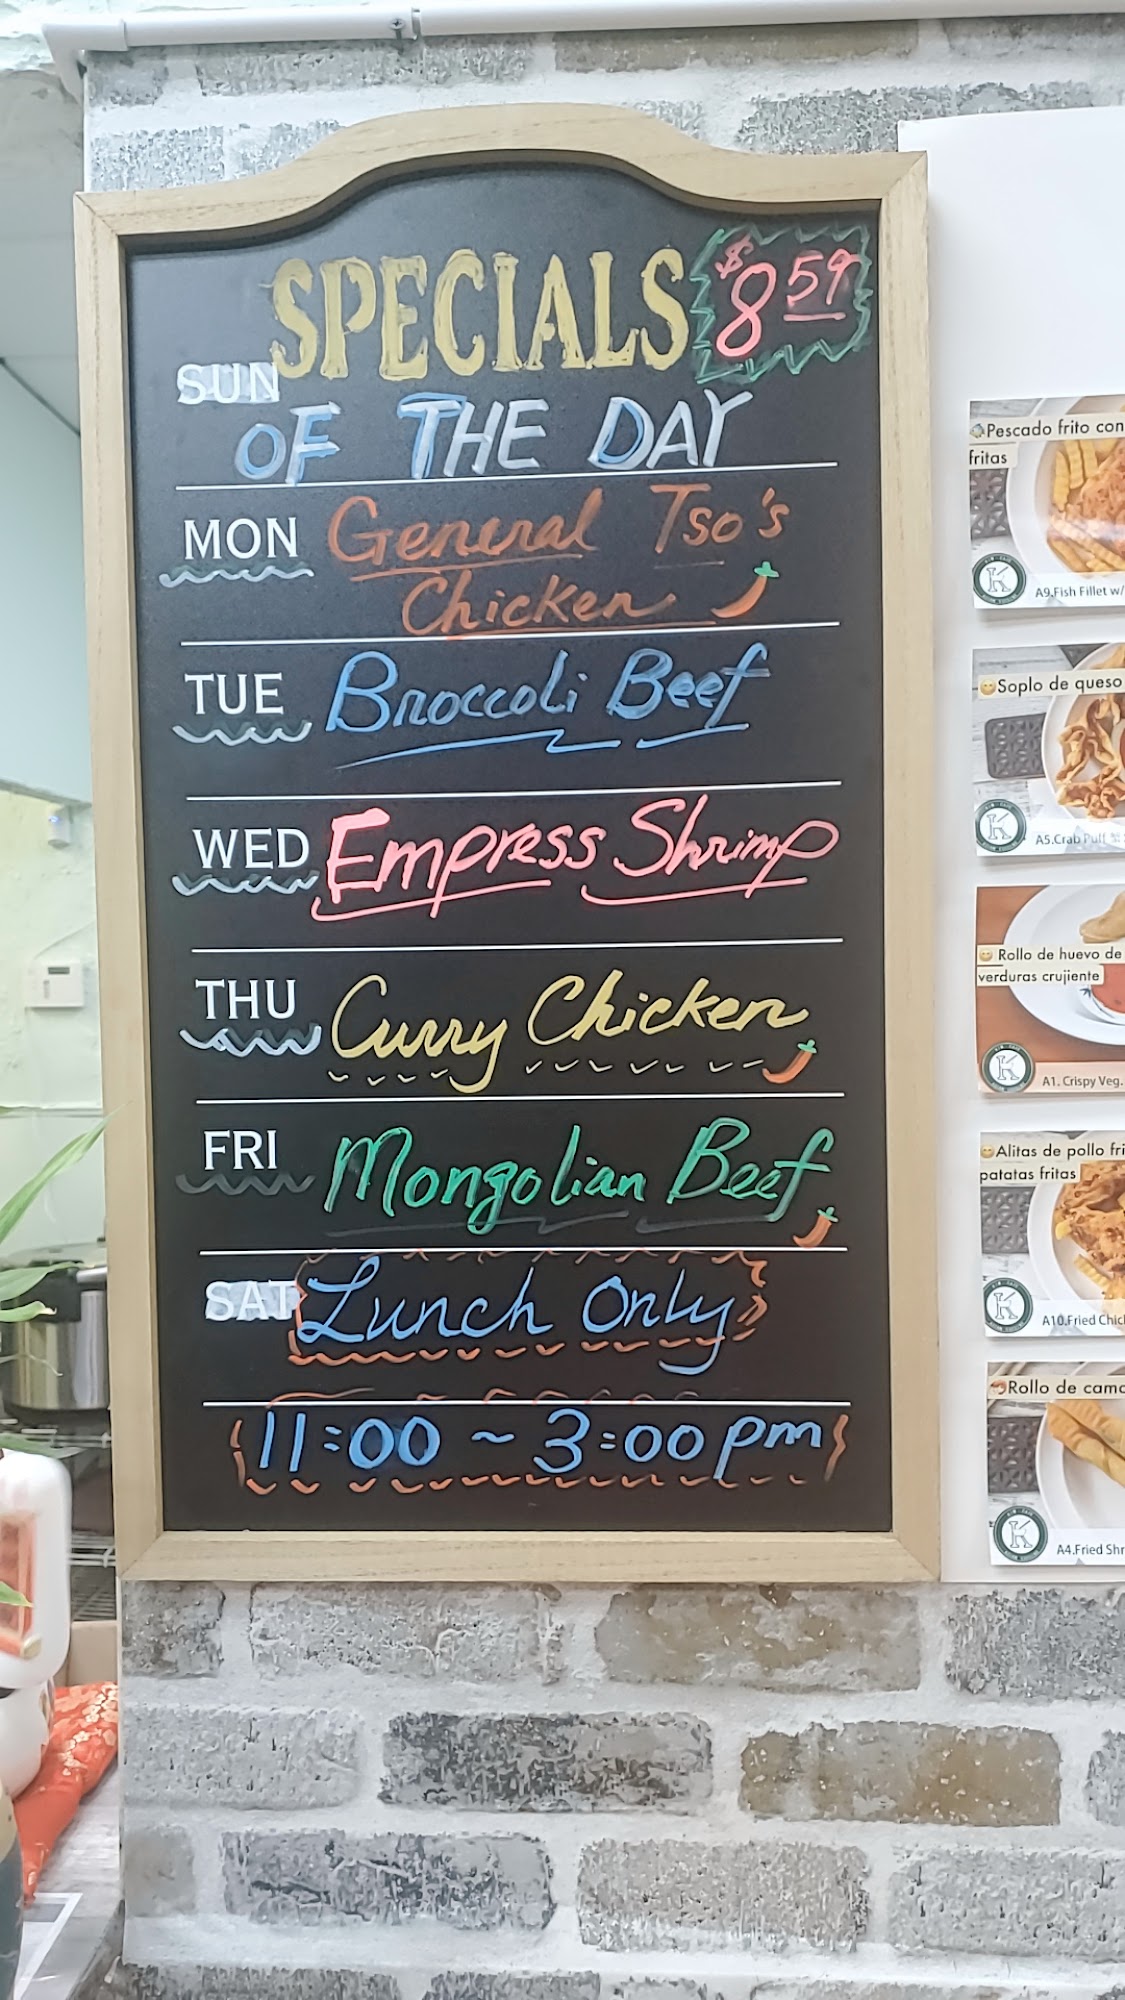 SPECIALS $8 59
SUN
OF THE DAY
MON General Tso's
Chicken
TUE Broccoli Beef
WED Empress Shrimp
THU Curry Chicken
FRI Mongolian Beef
SAT Lunch Only
11:00 ~ 3:00 pm
Pescado frito con
fritas
K
A9.Fish Fillet w/
Soplo de queso
K
A5.Crab Puff
Rollo de huevo de
verduras crujiente
K
A1. Crispy Veg.
Alitas de pollo fri
patatas fritas
K
A10.Fried Chic
Rollo de cama
K
A4.Fried Shr